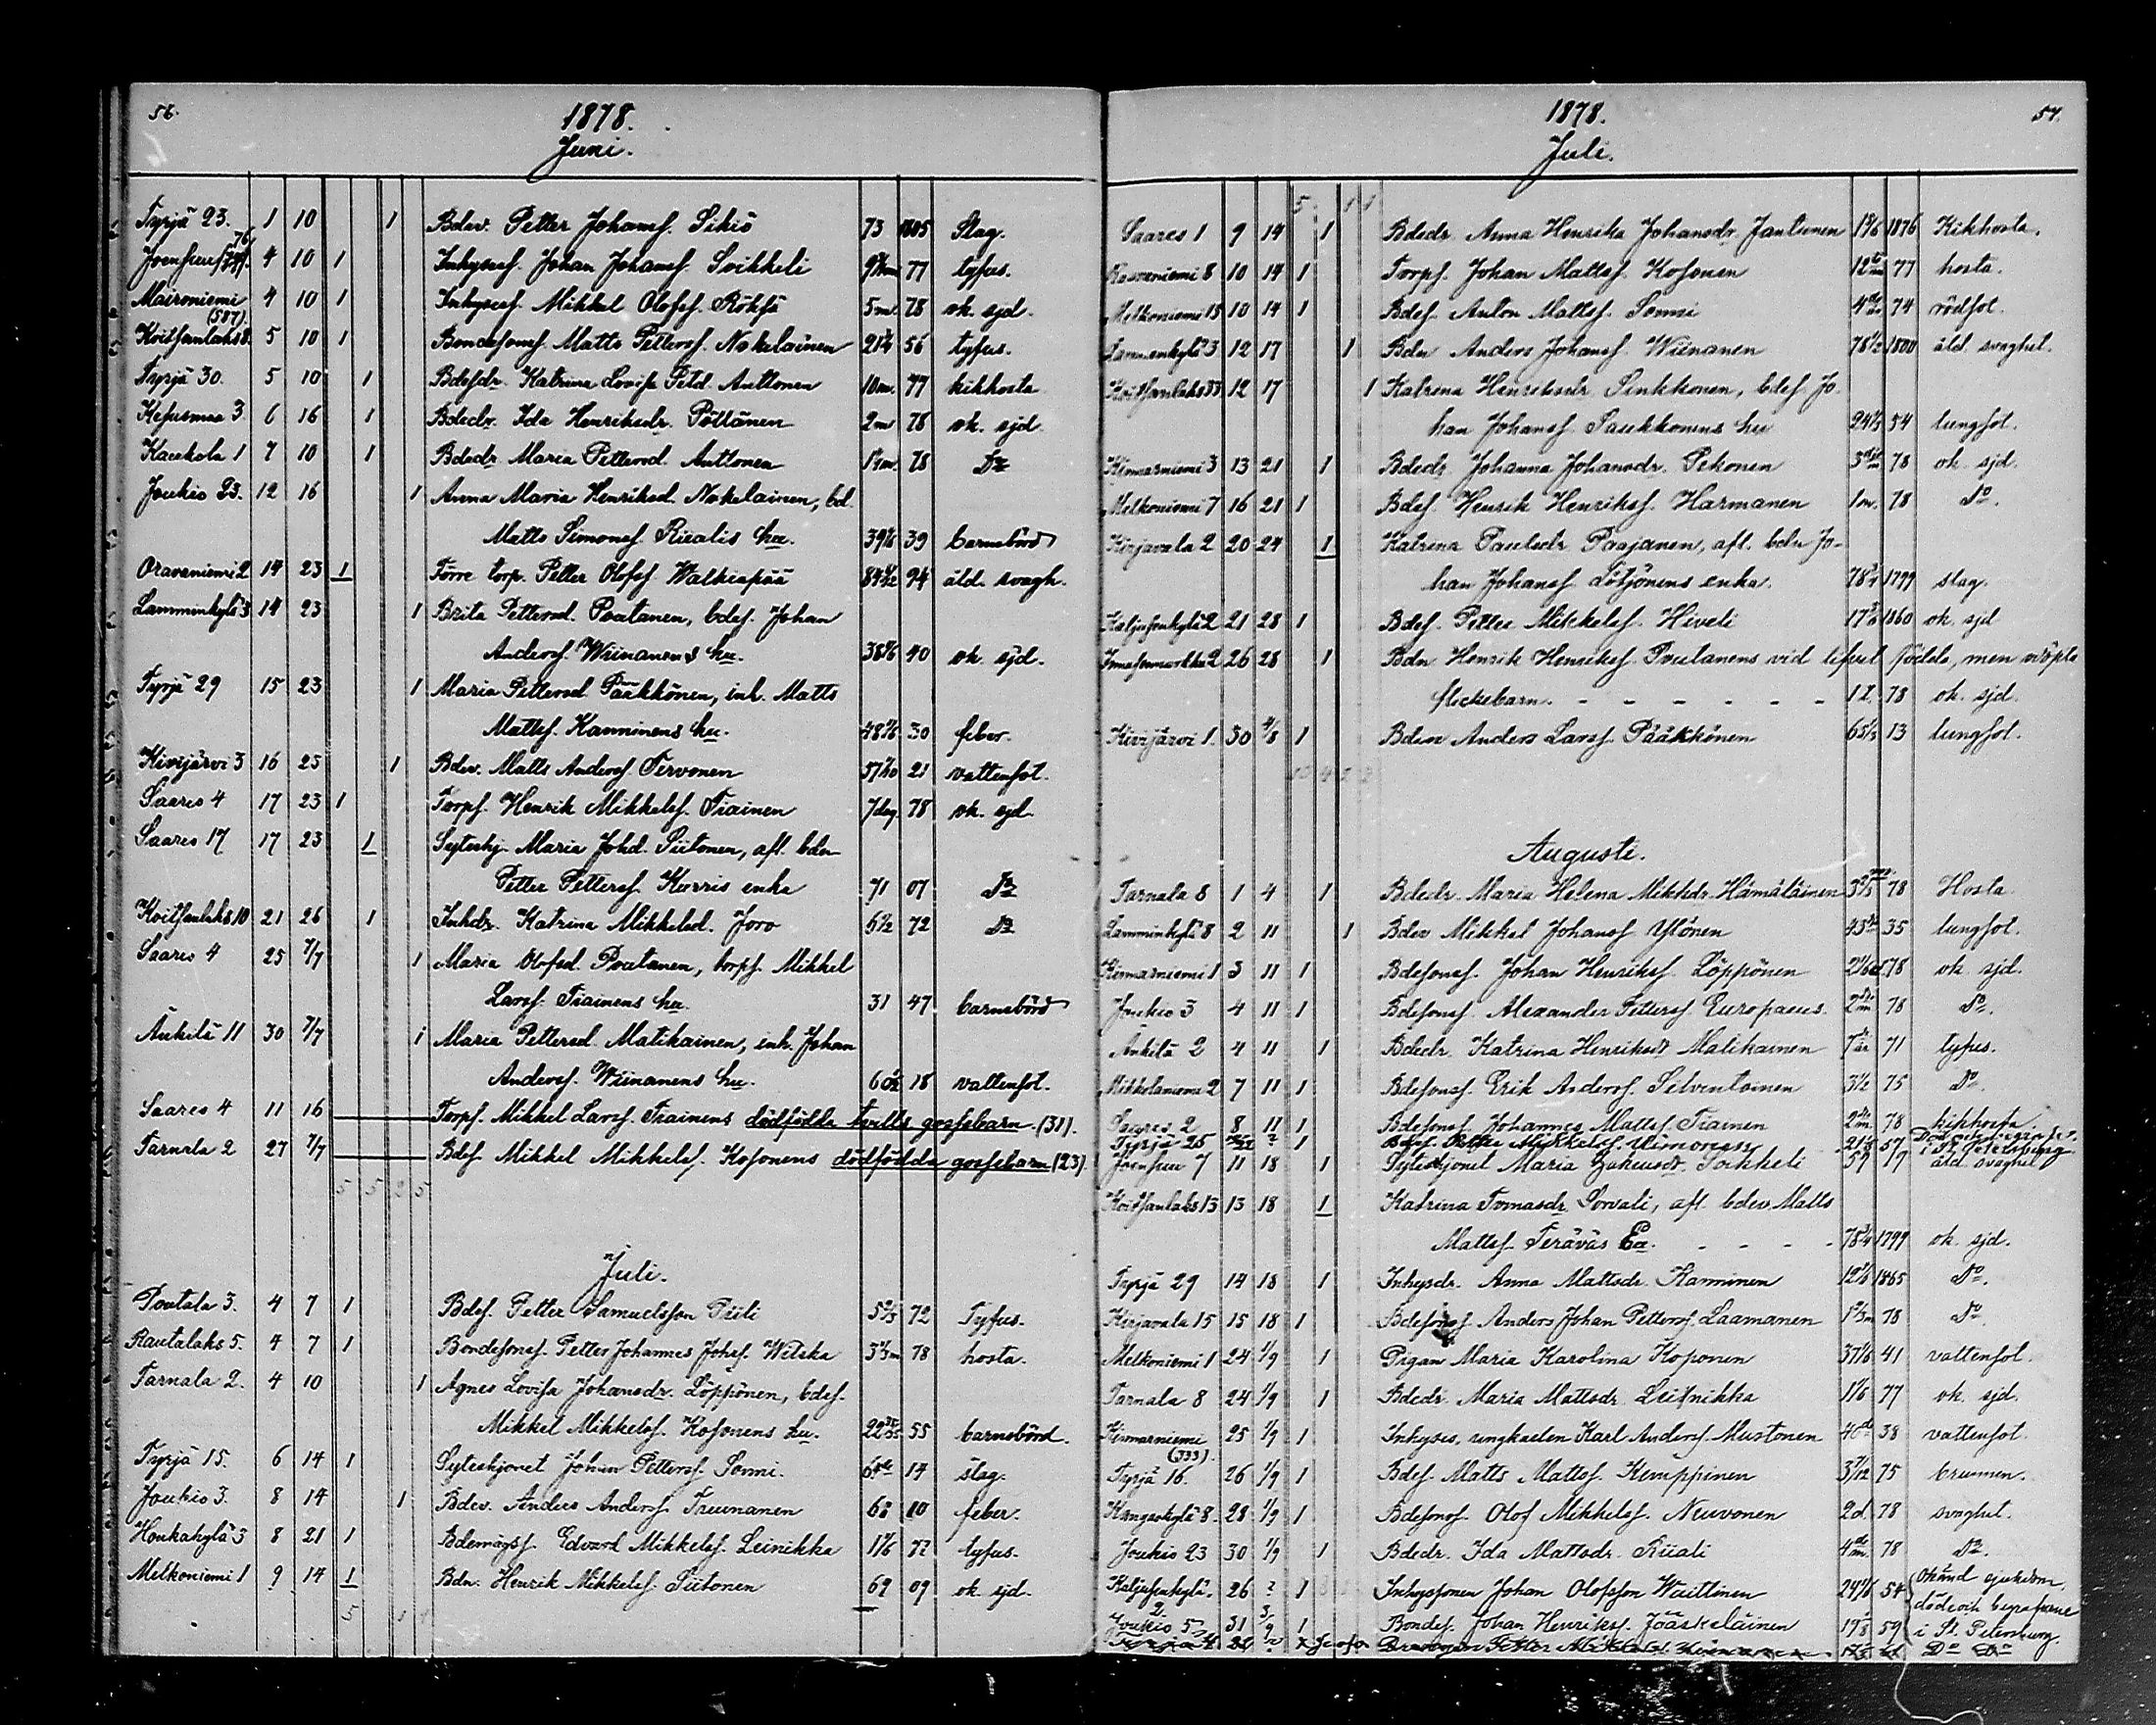 56.
1878.
Juni.
Tyrjä 23. 1 10 1 Bdev. Petter Johansf. Sikiö 73 1805 Slag.
4 10 1 Inhysesf. Johan Johansf. Svikkeli 77 tyfus.
Maironiemi (587) 4 10 1 Inhysesf. Mikkel Olofsf. Rökfä 5 m. 78 ok. sjd.
Koitsanlaks 8. 5 10 1 Bondesonsf. Matts Pettersf. Nokelainen 21 56 tyfus.
Tyrjä 30. 5 10 1 Bdesdr. Katrina Lovisa Petd. Anttonen 10 m. 77 kikhosta
Kesusmaa 3. 6 16 1 Bdedr. Ida Henriksdr. Pöllänen 2 m 78 ok. sjd.
Kaukola 1 7 10 1 Bdedr. Maria Pettersd. Anttonen 78 Do
Joukio 23. 12 16 1 Anna Maria Henriksd. Nokelainen, bd.
Matts Simonsf. Riialis hu. 39 39 barnsbörd
Oravaniemi 2 14 23 1 Förre torp. Petter Olofsf Walkiapää 84 94 åld. svagh.
Lamminkylä 3 14 23 1 Brita Pettersd. Poutanen, bdes. Johan
Andersf. Wiinanens hu. 38 40 ok. sjd.
Tyrjä 29 15 23 1 Maria Pettersd. Pääkkönen, inh. Matts
Mattsf. Kanninens hu. 48 30 feber.
Kivijärvi 3 16 25 1 Bdev. Matts Andersf. Tervonen 57 21 vattensot.
Saares 4 17 23 1 Torpf. Henrik Mikkelsf. Tiainen 7 dag 78 ok. sjd.
Saares 17 17 23 1 Sytnhj. Maria Johd. Siitonen, afl. bdn
Petter Pettersf. Kurris enka 71 07 Do
Koitsanlaks 10 21 26 1 Inhdr. Katrina Mikkelsd. Joro 6 1/2 72 Do
Saares 4 25 7/7 1 Maria Olofsd. Poutanen, torpf. Mikkel
Larsf. Tiainens hu. 31 47 barnsbörd
Änkilä 11 30 7/7 1 Maria Pettersd. Matikainen, inh. Johan
Andersf. Wiinanens hu. 60 18 vattensot.
Saares 4 11 16 Torpf. Mikkel Larsf. Tiainens dödfödda tvills gossebarn (31).
Tarnala 2 27 7/7 Bdef. Mikkel Mikkelsf. Kosonens dödfödda gossebarn (23).
5 5 2 5
Juli.
Poutala 3. 4 7 1 Bdef. Petter Samuelsson Piili 5 72 Tyfus.
Rautalaks 5. 4 7 1 Bondesonsf. Petter Johannes Johsf. Witska 78 hosta.
Tarnala 2. 4 10 1 Agnes Lovisa Johansdr. Löppönen, bdes.
Mikkel Mikkelsf. Kosonens hu. 22 55 barnsbörd.
Tyrjä 15. 6 14 1 Syteshjonet Johan Pettersf. Sonni. 64 14 slag.
Joukio 3. 8 14 1 Bdev. Anders Andersf. Truunanen 68 10 feber.
Honkakylä 3 8 21 1 Bdemågsf. Edvard Mikkelsf. Leinikka 1 1/6 77 tyfus.
Melkoniemi 1 9 14 1 Bdn. Henrik Mikkelsf. Siitonen 69 09 ok. sjd.
5
57.
1878.
Juli.
Saares 1 9 14 1 Bdedr. Anna Henrika Johansdr. Jantunen 1876 Kikhosta.
10 14 1 Torpf. Johan Mattsf. Kosonen 77 hosta.
Melkoniemi 18 10 14 1 Bdef. Anton Mattsf. Sonni 74 rödsot.
Lamminkylä 3 12 17 1 Bdn Anders Johansf. Wiinanen 78 1/2 1800 åld. svaghet.
Koitsanlaks 33 12 17 1 Katrina Henriksdr Sinkkonen, bdes Jo-
han Johansf Saukkonens hu 54 lungsot.
Kinnarniemi 3 13 21 1 Bdedr. Johanna Johansdr. Pekonen 78 ok. sjd.
Melkoniemi 7 16 21 1 Bdef. Henrik Henriksf. Harmanen 1 m. 78 Do.
Kirjavala 2 20 24 1 Katrina Paulsdr Paajanen, afl. bdn Jo-
han Johansf. Lötjönens enka. 78 1799 slag.
Kaljusenkylä 2 21 28 1 Bdef. Petter Mikkelsf. Hiveli 17 1860 ok. sjd
26 28 1 Bdn Henrik Henriksf. Poutanens vid lifvet födda, men odöpta
flickebarn. 78 ok. sjd.
Kivijärvi 1. 30 4/8 1 Bdesv Anders Larsf. Pääkkönen 65 13 lungsot.
Augusti.
Tarnala 8 1 4 1 Bdedr. Maria Helena Mikksdr. Hämäläinen 78 Hosta
Lamminkylä 8 2 11 1 Bdev Mikkel Johansf Ylönen 43 35 lungsot.
Kinnarniemi 1 3 11 1 Bdesonsf. Johan Henriksf. Löppönen 78 ok. sjd.
Joukio 3 4 11 1 Bdesonsf. Alexander Pettersf. Europaeus. 78 Do.
Änkilä 2 4 11 1 Bdedr. Katrina Henriksdr Matikainen 71 tyfus.
Mikkolanniemi 2 7 11 1 Bdesonsf. Erik Andersf. Silventoinen 3 1/2 75 Do.
Saares 2 8 11 1 Bdesonsf. Johannes Mattsf. Tiainen 78 kikhosta.
Tyrjä 25 1 Bdef. Petter Mikkelsf. Wimonen 57 i St. Petersburg
Joensuu 7 11 18 1 Syteshjonet Maria Soikkeli 59 19 åld. svaghet
Koitsanlaks 13 13 18 1 Katrina Tomasdr. Sorvali, afl. bdev. Matts
Mattsf. Terävas Ea. 78 3/4 1799 ok. sjd.
Tyrjä 29 14 18 1 Inhysdr. Anna Mattsdr. Kanninen 1865 Do.
Kirjavala 15 15 18 1 Bdesonsf Anders Johan Pettersf. Laamanen 78 Do.
Melkoniemi 1 24 1/9 1 Pigan Maria Karolina Koponen 37 41 vattensot.
Tarnala 8 24 1/9 1 Bdedr. Maria Mattsdr. Leinikka 1 1/6 77 ok. sjd.
Kinnarniemi (333). 25 1/9 1 Inhyses, ungkarlen Karl Andersf. Mustonen 38 vattensot.
Tyrjä 16. 26 1/9 1 Bdef. Matts Mattsf. Kemppinen 3 75 brunnen.
Kangaskylä 8. 28 1/9 1 Bdesonsf. Olof Mikkelsf. Neuvonen 2 d. 78 svaghet.
Joukio 23 30 1/9 1 Bdedr. Ida Mattsdr. Riiali 78 Do.
Kaljusenkylä 2. 26 ? 1 Inhyssonen Johan Olofsson Waittinen 24 54 Okänd sjukdom,
Joukio 5 31 1 Bondef. Johan Henriksf. Jääskeläinen 19 59 döde och begrafvne i St. Petersburg.
Petter Mikkelsf. Do Do